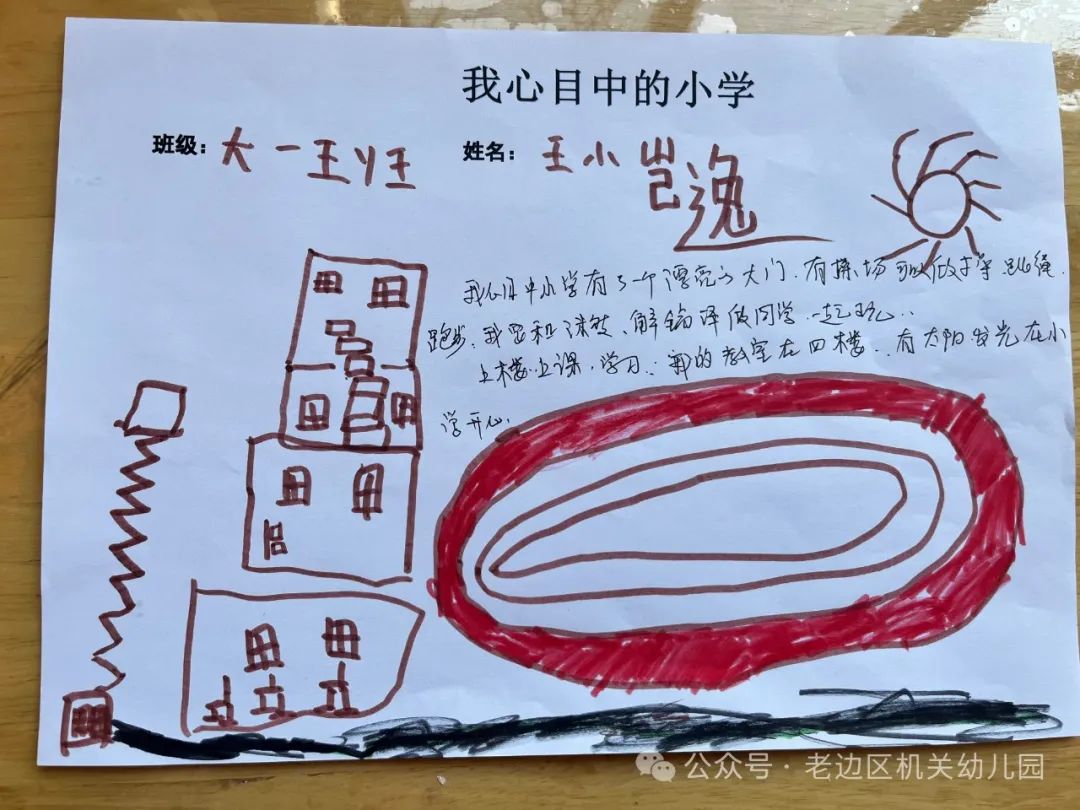 我心目中的小学
班级：大一班 姓名：王小岂逸
我心目中小学有了一个漂亮的大门.有操场可以做早操 跳绳.
跑步.我跟和 、解 泽做同学.一起玩..
上楼.上课.学习.:我的教室在四楼..有太阳发光在小
学开心.
公众号·老边区机关幼儿园